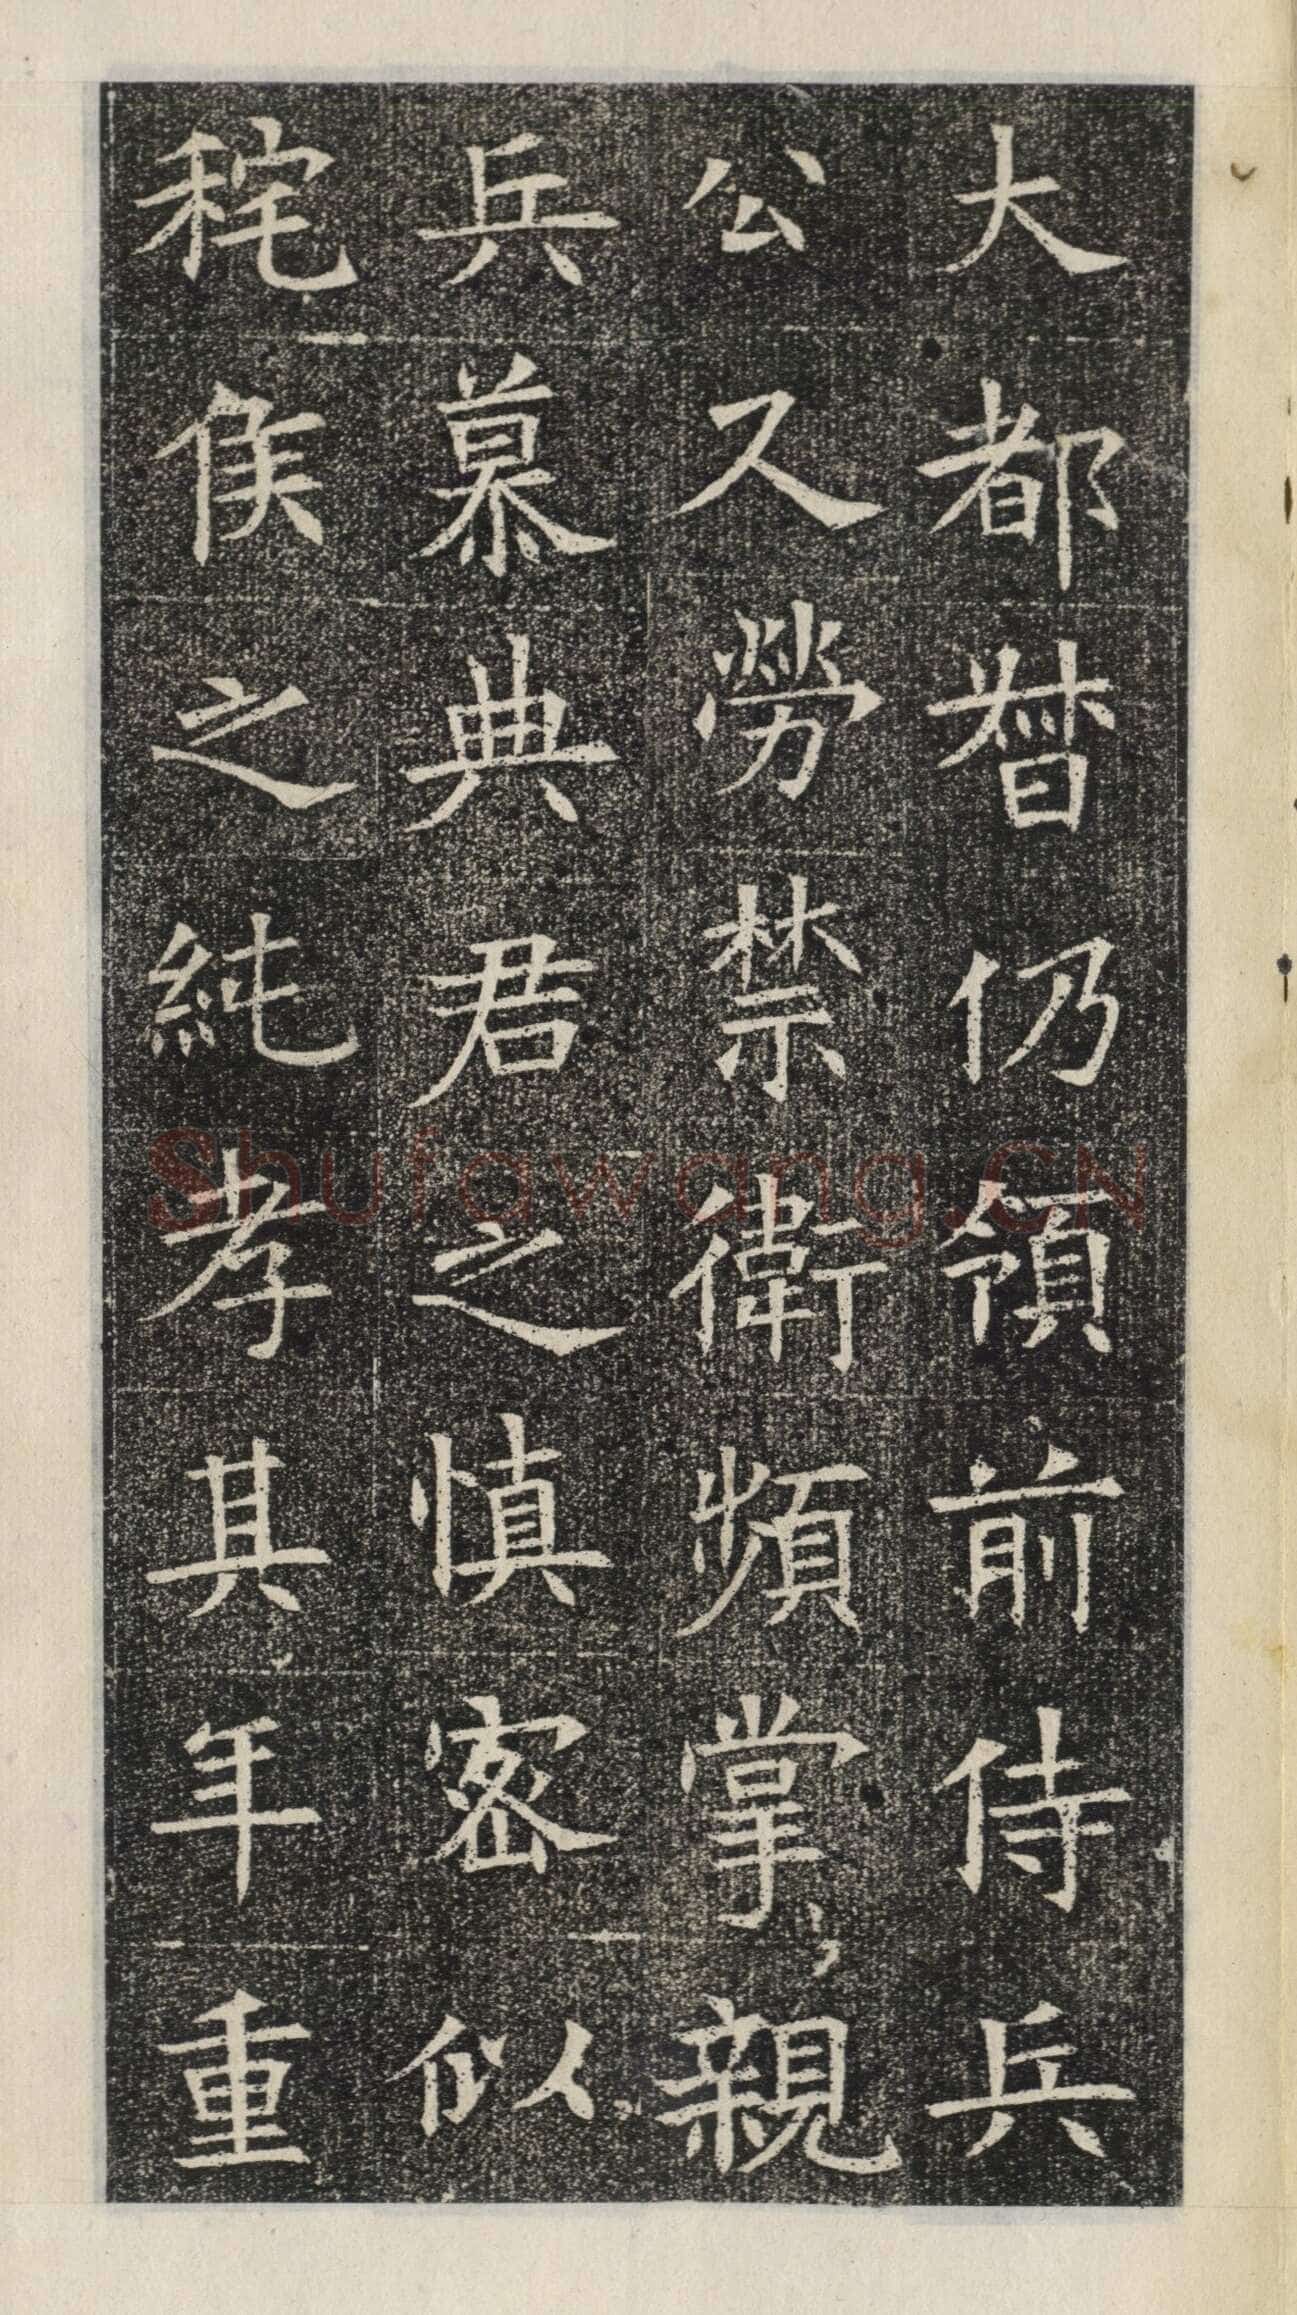 大都督仍領前侍兵
公久勞禁衛頻掌親
兵慕典君之慎密似
秺侯之純孝其年重
Shufawang.CN